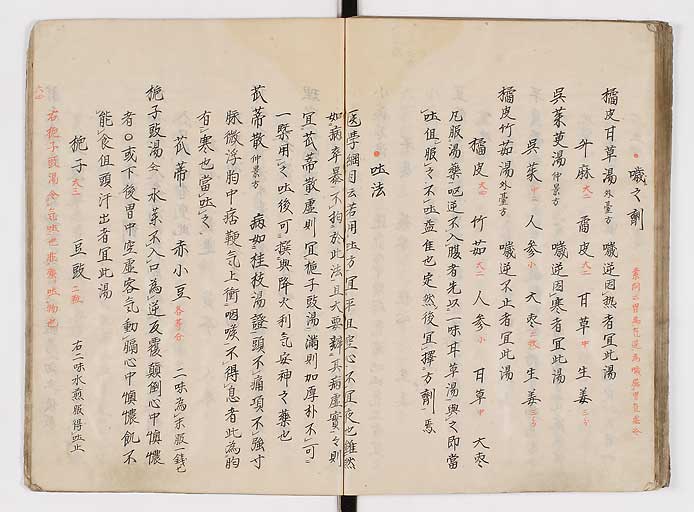 噦之劑
橘皮甘草湯 外臺方 噦逆因熱者宜此湯
升麻 大二 橘皮 大二 甘草 中 生姜 三分
呉茱萸湯 仲景方 噦逆因寒者宜此湯
呉茱 中二 人参 小 大枣 二枚 生姜 三分
橘皮竹茹湯 外臺方 噦逆不止者宜此湯
橘皮 大四 竹茹 大二 人参 小 甘草 中 大枣
凡服湯藥嘔逆不入腹者先以一味甘草湯與之即當
吐但服之不吐益佳也定然後宜擇方劑焉
吐法
医學綱目云若用吐方宜平旦空心不宜夜也雖然
如病卒暴不拘於此法且大要辨其病虚實實則
宜苽蒂散虚則宜栀子豉湯満則加厚朴不可
一槩用之吐後可撰與降火利気安神之藥也
苽蒂散 仲景方 病如桂枝湯證頭不痛項不強寸
脉微浮胸中痞鞕気上衝咽喉不得息者此為胸
有寒也當吐之
苽蒂 赤小豆 各等分 二味為末服一錢匕
栀子豉湯 仝 水薬不入口為逆反覆顛倒心中懊憹
者○或下後胃中空虚客気動膈心中懊憹飢不
能食但頭汗出者宜此湯
栀子 大三 豆豉 二瓶 右二味水煎服得吐止